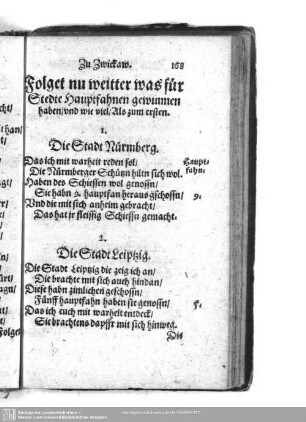 Zu Zwickaw. 168
Folget nu weitter was für
Stedte Hauptfahnen gewinnen
haben/vnd wie viel/Als zum ersten.
1.
Die Stadt Nürmberg.
Das ich mit warheit reden sol/ Haupt-
Die Nürmberger Schützn hiltn sich wol. fahn.
Haben des Schiessen wol genossn/
Sie habn 9. hauptfan heraus gschossn/ 9.
Vnd die mit sich anheim gebracht/
Das hat jr fleissig Schiessn gemacht.
2.
Die Stadt Leiptzig.
Die Stadt Leiptzig die zeig ich an/
Die brachte mit sich auch hindan/
Diese habn zimlichen geschossn/
Fünff hauptfahn haben sie genossn/ 5.
Das ich euch mit warheit entdeck/
Sie brachtens dapffr mit sich hinweg.
Die